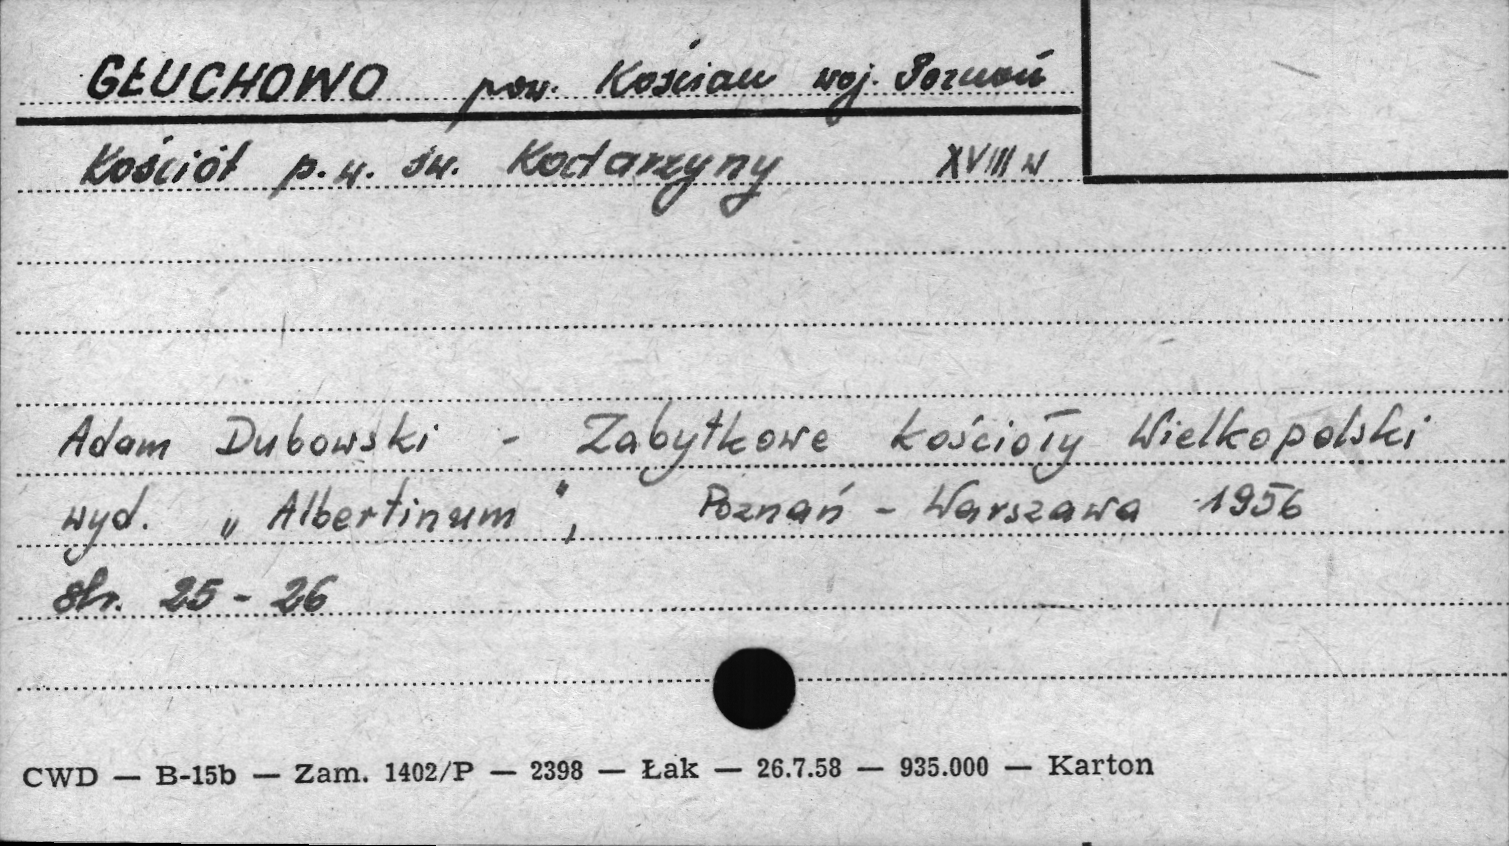 GŁUCHOWO pow. Kościan woj. Poznań
Kościół p.w. św. Katarzyny XVIII w
Adam Dubowski - Zabytkowe kościoły Wielkopolski
wyd. „Albertinum", Poznań - Warszawa 1956
str. 25 - 26
CWD — B-15b — Zam. 1402/P — 2398 — Łak — 26.7.58 — 935.000 — Karton